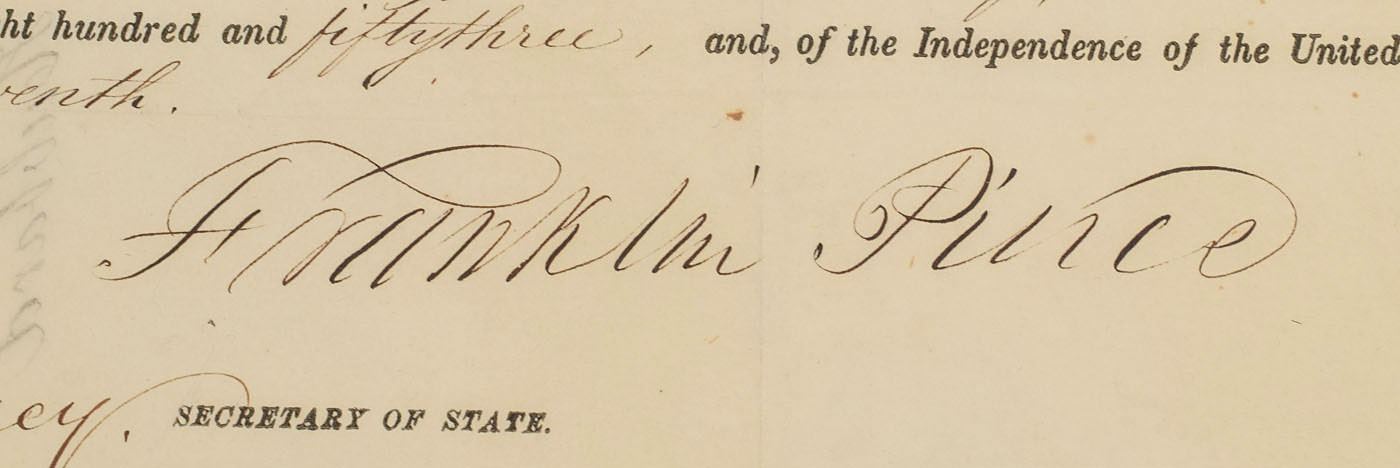 ht hundred and fiftythree, and, of the Independence of the United
venth.
Franklin Pierce
cy. SECRETARY OF STATE.